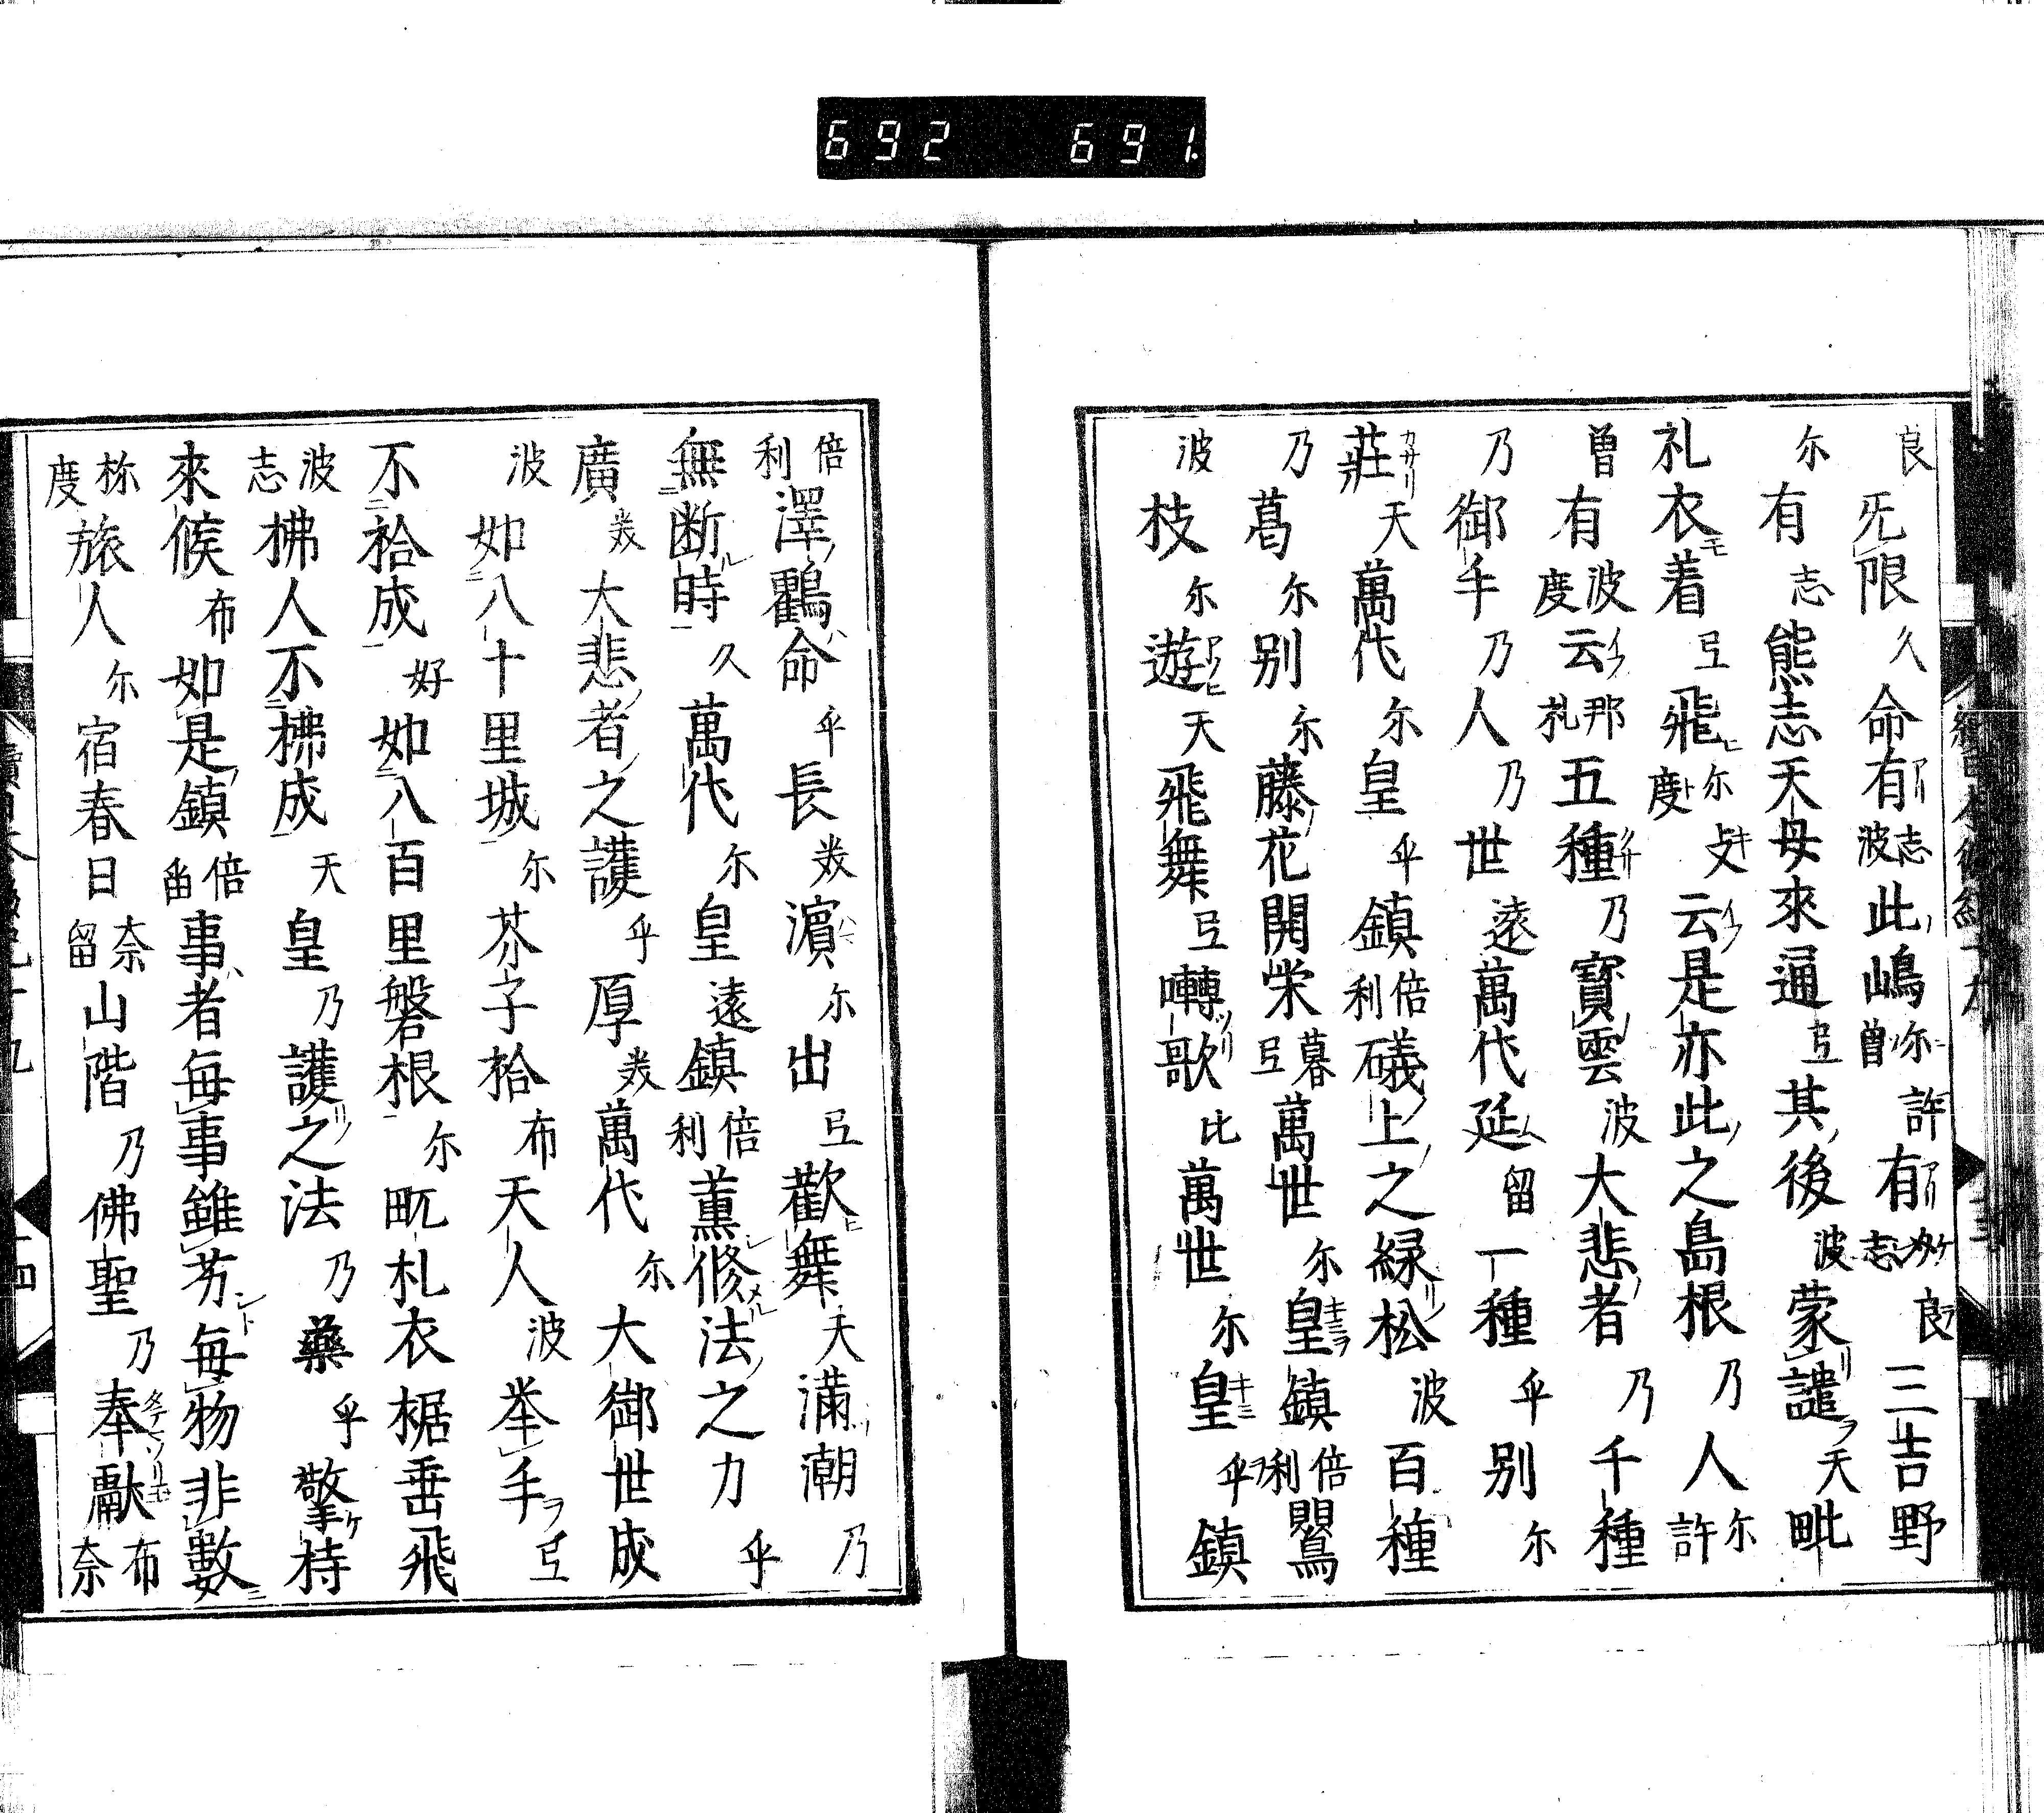 692 691
良无限久命有志波此嶋尓曽許有介志良三吉野
尓有志熊志天毋來通弖其後波蒙譴天毗
礼衣着弖飛尓度攴云是亦此之島根乃人尓許
曽有波度云那礼五種乃寶雲波大悲者乃千種
乃御手乃人乃世遠萬代延留一種乎别尓
荘天萬代尓皇乎鎮倍利礒上之緑松波百種
乃葛尓别尓藤花開栄暮弖萬世尓皇鎮倍利鸎
波枝尓遊天飛舞弖囀歌比萬世尓皇乎鎮
倍利澤鸖命乎長幾濵尓出弖歡舞天満潮乃
無断時久萬代尓皇遠鎮倍利薫修法之力乎
廣幾大悲者之護乎厚幾萬代尓大御世成
波如八十里城尓芥子拾布天人波挙手弖
不拾成好如八百里磐根尓毗礼衣裾垂飛
波志拂人不拂成天皇乃護之法乃藥乎擎持
來候布如是鎮倍留事者毎事雖芳毎物非數
袮度旅人尓宿春日奈留山階乃佛聖乃奉獻布奈